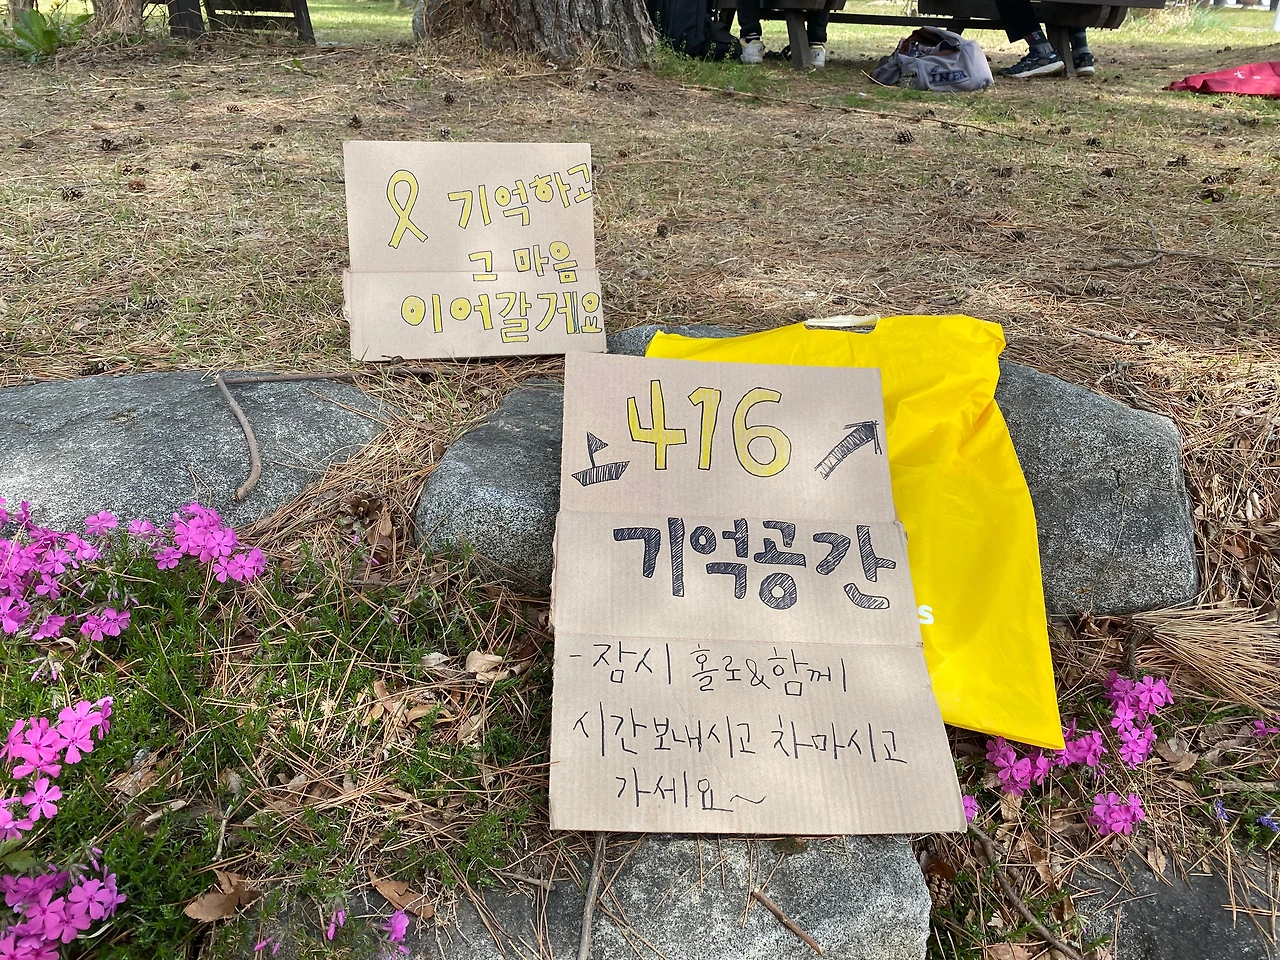 기억하고
그 마음
이어갈게요
416
기억공간
-잠시 홀로&함께
시간보내시고 차마시고
가세요~
s